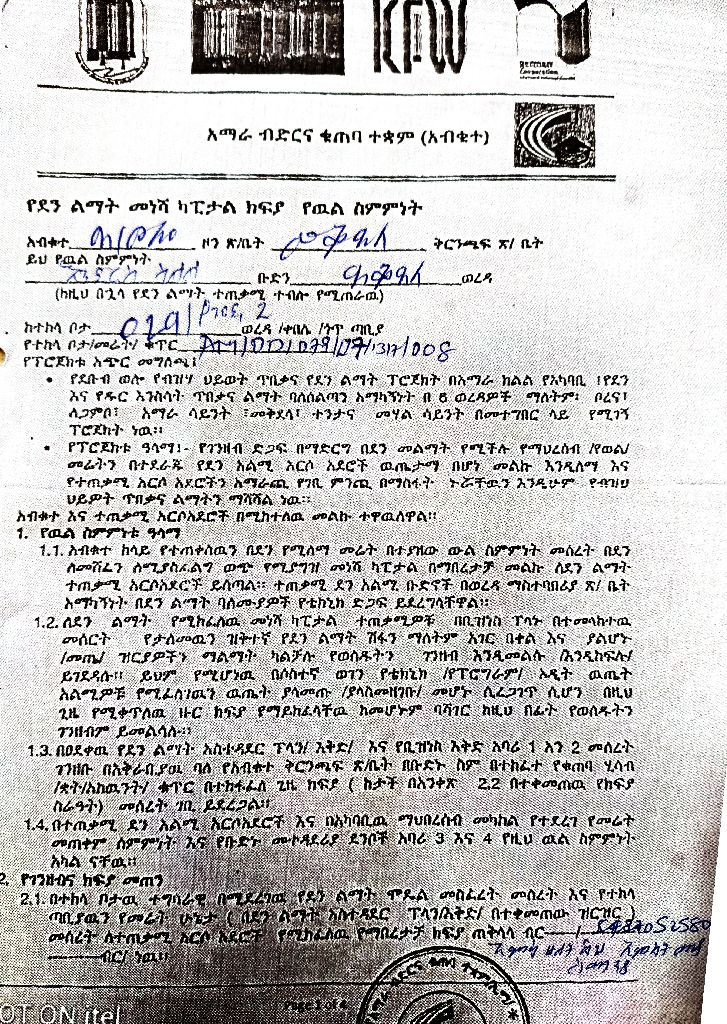 KFW
german
Cooperation
አማራ ብድርና ቁጠባ ተቋም (አብቁተ)
የደን ልማት መነሻ ካፒታል ክፍያ የዉል ስምምነት
አብቁተ ዞን ጽ/ቤት መቅደላ ቅርንጫፍ ጽ/ ቤት
ይህ የዉል ስምምነት
ቡድን መቅደላ ወረዳ
(ከዚህ በኋላ የደን ልማት ተጠቃሚ ተብሎ የሚጠራዉ)
ከተከላ ቦታ ወረዳ /ቀበሌ /ጎጥ ጣቢያ
የተከላ ቦታ/መሬት/ ቁጥር
የፕሮጀክቱ አጭር መግለጫ፤
• የደቡብ ወሎ የብዝሃ ህይወት ጥበቃና የደን ልማት ፕሮጀክት በአማራ ክልል የአካባቢ ፤የደን
እና የዱር እንስሳት ጥበቃና ልማት ባለስልጣን አማካኝነት በ 6 ወረዳዎች ማለትም፡ ቦረና፤
ሌጋምቦ፤ አማራ ሳይንት ፤መቅደላ፤ ተንታና መሃል ሳይንት በመተግበር ላይ የሚገኝ
ፕሮጀክት ነዉ።
• የፕሮጀክቱ ዓላማ፤- የገንዘብ ድጋፍ በማድርግ በደን መልማት የሚችሉ የማህረሰብ /የወል/
መሬትን በተደራጁ የደን አልሚ አርሶ አደሮች ዉጤታማ በሆነ መልኩ እንዲለማ እና
የተጠቃሚ አርሶ አደሮችን አማራጫ የገቢ ምንጪ በማስፋት ኑሯቸዉን እንዲሁም የብዝሃ
ህይዎት ጥበቃና ልማትን ማሻሻል ነዉ።
አብቁተ እና ተጠቃሚ አርሶአደሮች በሚከተለዉ መልኩ ተዋዉለዋል።
1. የዉል ስምምነቱ ዓላማ
1.1. አብቁተ ከላይ የተጠቀሰዉን በደን የሚለማ መሬት በተያዘው ውል ስምምነት መሰረት በደን
ለመሸፈን ለሚያስፈልግ ውጭ የሚያግዝ መነሻ ካፒታል በማበረታቻ መልኩ ለደን ልማት
ተጠቃሚ አርሶአደሮች ይሰጣል። ተጠቃሚ ደን አልሚ ቡድኖች በወረዳ ማስተባበሪያ ጽ/ ቤት
አማካኝነት በደን ልማት ባለሙያዎች የቴክኒክ ድጋፍ ይደረግላቸዋል።
1.2. ለደን ልማት የሚከፈለዉ መነሻ ካፒታል ተጠቃሚዎቹ በቢዝነስ ፕላኑ በተመላከተዉ
መሰርት የታለመዉን ዝቅተኛ የደን ልማት ሽፋን ማለትም አገር በቀል እና ያልሆኑ
/መጤ/ ዝርያዎችን ማልማት ካልቻሉ የወሰዱትን ገንዘብ እንዲመልሱ /እንዲከፍሉ/
ይገደዳሉ። ይህም የሚሆነዉ በሶስተኛ ወገን የቴክኒክ /የፕሮግራም/ ኦዲት ዉጤት
አልሚዎቹ የሚፈለገዉን ዉጤት ያላመጡ /ያላስመዘገቡ/ መሆኑ ሲረጋገጥ ሲሆን በዚህ
ጊዜ የሚቀጥለዉ ዙር ክፍያ የማይከፈላቸዉ ከመሆኑም ባሻገር ከዚህ በፊት የወሰዱትን
ገንዘብም ይመልሳሉ።
1.3. በፀደቀዉ የደን ልማት አስተዳደር ፕላን/ እቅድ/ እና የቢዝነስ እቅድ አባሪ 1 እን 2 መሰረት
ገንዘቡ በአቅራቢያዉ ባለ የአብቁተ ቅርንጫፍ ጽ/ቤት በቡድኑ ስም በተከፈተ የቁጠባ ሂሳብ
/ቋት/አካዉንት/ ቁጥር በተከፋፈለ ጊዜ ክፍያ ( ከታች በአንቀጽ 2.2 በተቀመጠዉ የክፍያ
ስራዓት) መሰረት ገቢ ይደረጋል።
1.4. በተጠቃሚ ደን አልሚ አርሶአደሮች እና በአካባቢዉ ማህበረሰብ መካከል የተደረገ የመሬት
መጠቀም ስምምነት እና የቡድኑ መተዳደሪያ ደንቦች አባሪ 3 እና 4 የዚህ ዉል ስምምነት
አካል ናቸዉ።
2. የገንዘብና ክፍያ መጠን
2.1. በተከላ ቦታዉ ተግባራዊ በሚደረገዉ የደን ልማት ሞዴል መስፈረት መሰረት እና የተከላ
ጣቢያዉን የመሬት ሁኔታ ( በደን ልማት አስተዳደር ፕላን/እቅድ/ በተቀመጠው ዝርዝር )
መሰረት ለተጠቃሚ አርሶ አደሮች የሚከፈለዉ የማበረታቻ ክፍያ ጠቅላላ ብር
ብር/ ነዉ።
Page 1 of 4
OT ON itel